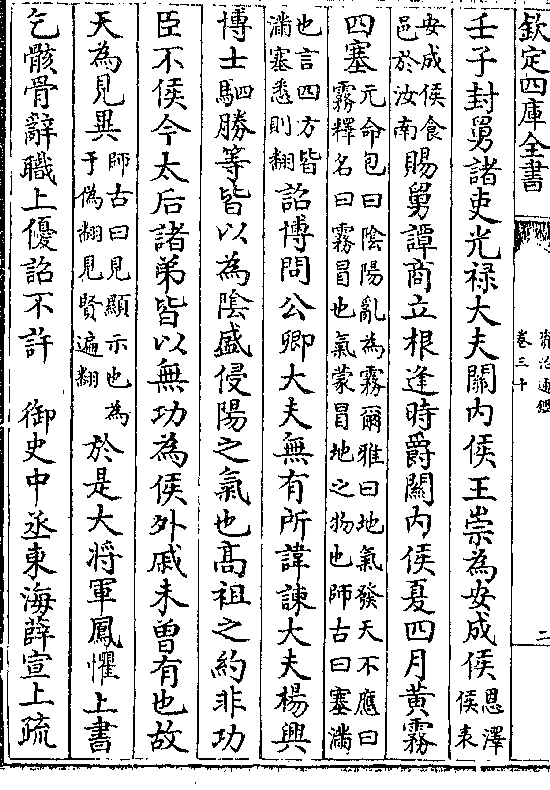 欽定四庫全書
資治通鑑
卷三十
二
壬子封舅諸吏光祿大夫關內侯王崇為安成侯恩澤侯表
安成侯食邑於汝南賜舅譚商立根逢時爵關內侯夏四月黃霧
四塞元命包曰陰陽亂為霧爾雅曰地氣發天不應曰霧釋名曰霧冒也氣蒙冒地之物也師古曰塞滿
也言四方皆滿塞悉則翻詔博問公卿大夫無有所諱諫大夫楊興
博士駟勝等皆以為陰盛侵陽之氣也高祖之約非功
臣不侯今太后諸弟皆以無功為侯外戚未曾有也故
天為見異師古曰見顯示也為于偽翻見賢遍翻於是大將軍鳳懼上書
乞骸骨辭職上優詔不許 御史中丞東海薛宣上疏